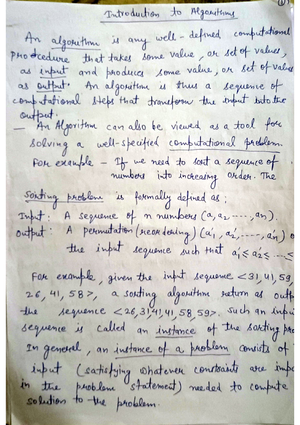 Introduction to Algorithms
An algorithm is any well-defined computational
procedure that takes some value, or set of values,
as input and produces some value, or set of values
as output. An algorithm is thus a sequence of
computational steps that transform the input into the
output.
— An Algorithm can also be viewed as a tool for
solving a well-specified computational problem.
For example - If we need to sort a sequence of
numbers into increasing order. The
sorting problem is formally defined as:
Input: A sequence of n numbers (a, a2 ----, an).
Output: A permutation (reordering) (a'1, a'2, -----, a'n)
the input sequence such that a'1 ≤ a'2 ≤ --- ≤
For example, given the input sequence <31, 41, 59,
26, 41, 58>, a sorting algorithm return as outp
the sequence <26, 31, 41, 41, 58, 59>. Such an input
sequence is called an instance of the sorting pro
In general, an instance of a problem consists of
input (satisfying whatever constraints are impo
in the problem statement) needed to compute
solution to the problem.